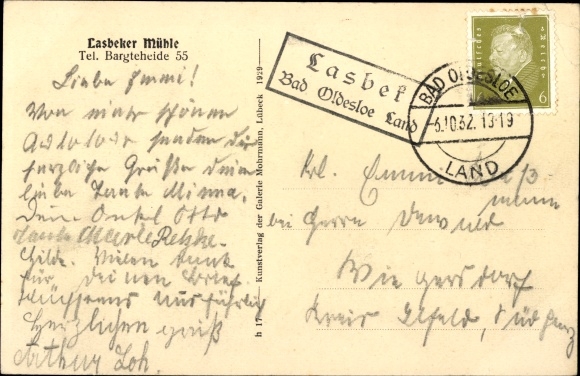 Lasbeker Mühle
Tel. Bargteheide 55
Liebe Emmi!
Von einer schönen
Autotour senden dir
herzliche Grüße deine
liebe Tante Minna,
Dein Onkel Otto
Tante Marie Retzke.
Hilde. Vielen Dank
für Deinen Brief.
ausführlich
Herzlichen Gruß
Arthur Loh.
h 17 Kunstverlag der Galerie Mohrmann, Lübeck 1929
Lasbek
Bad Oldesloe Land
BAD OLDESLOE
-6.10.32. 18-19
LAND
Deutsches Reich
6 6
Frl. Emmi
bei Herrn
Wiegersdorf
Kreis Ilfeld, Südharz